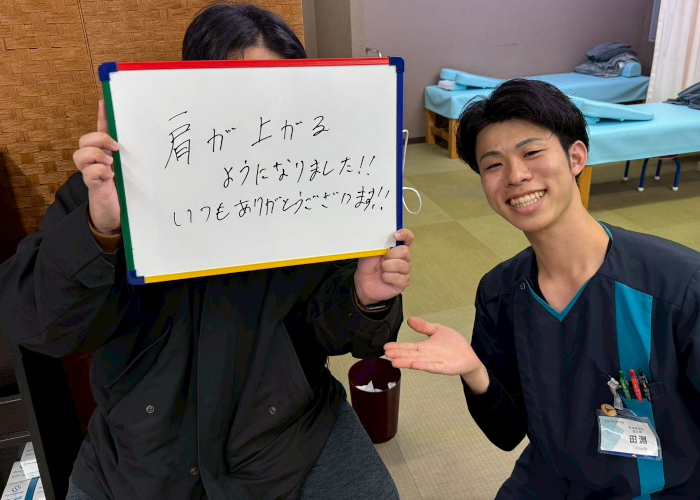 肩が上がる
ようになりました!!
いつもありがとうございます!!